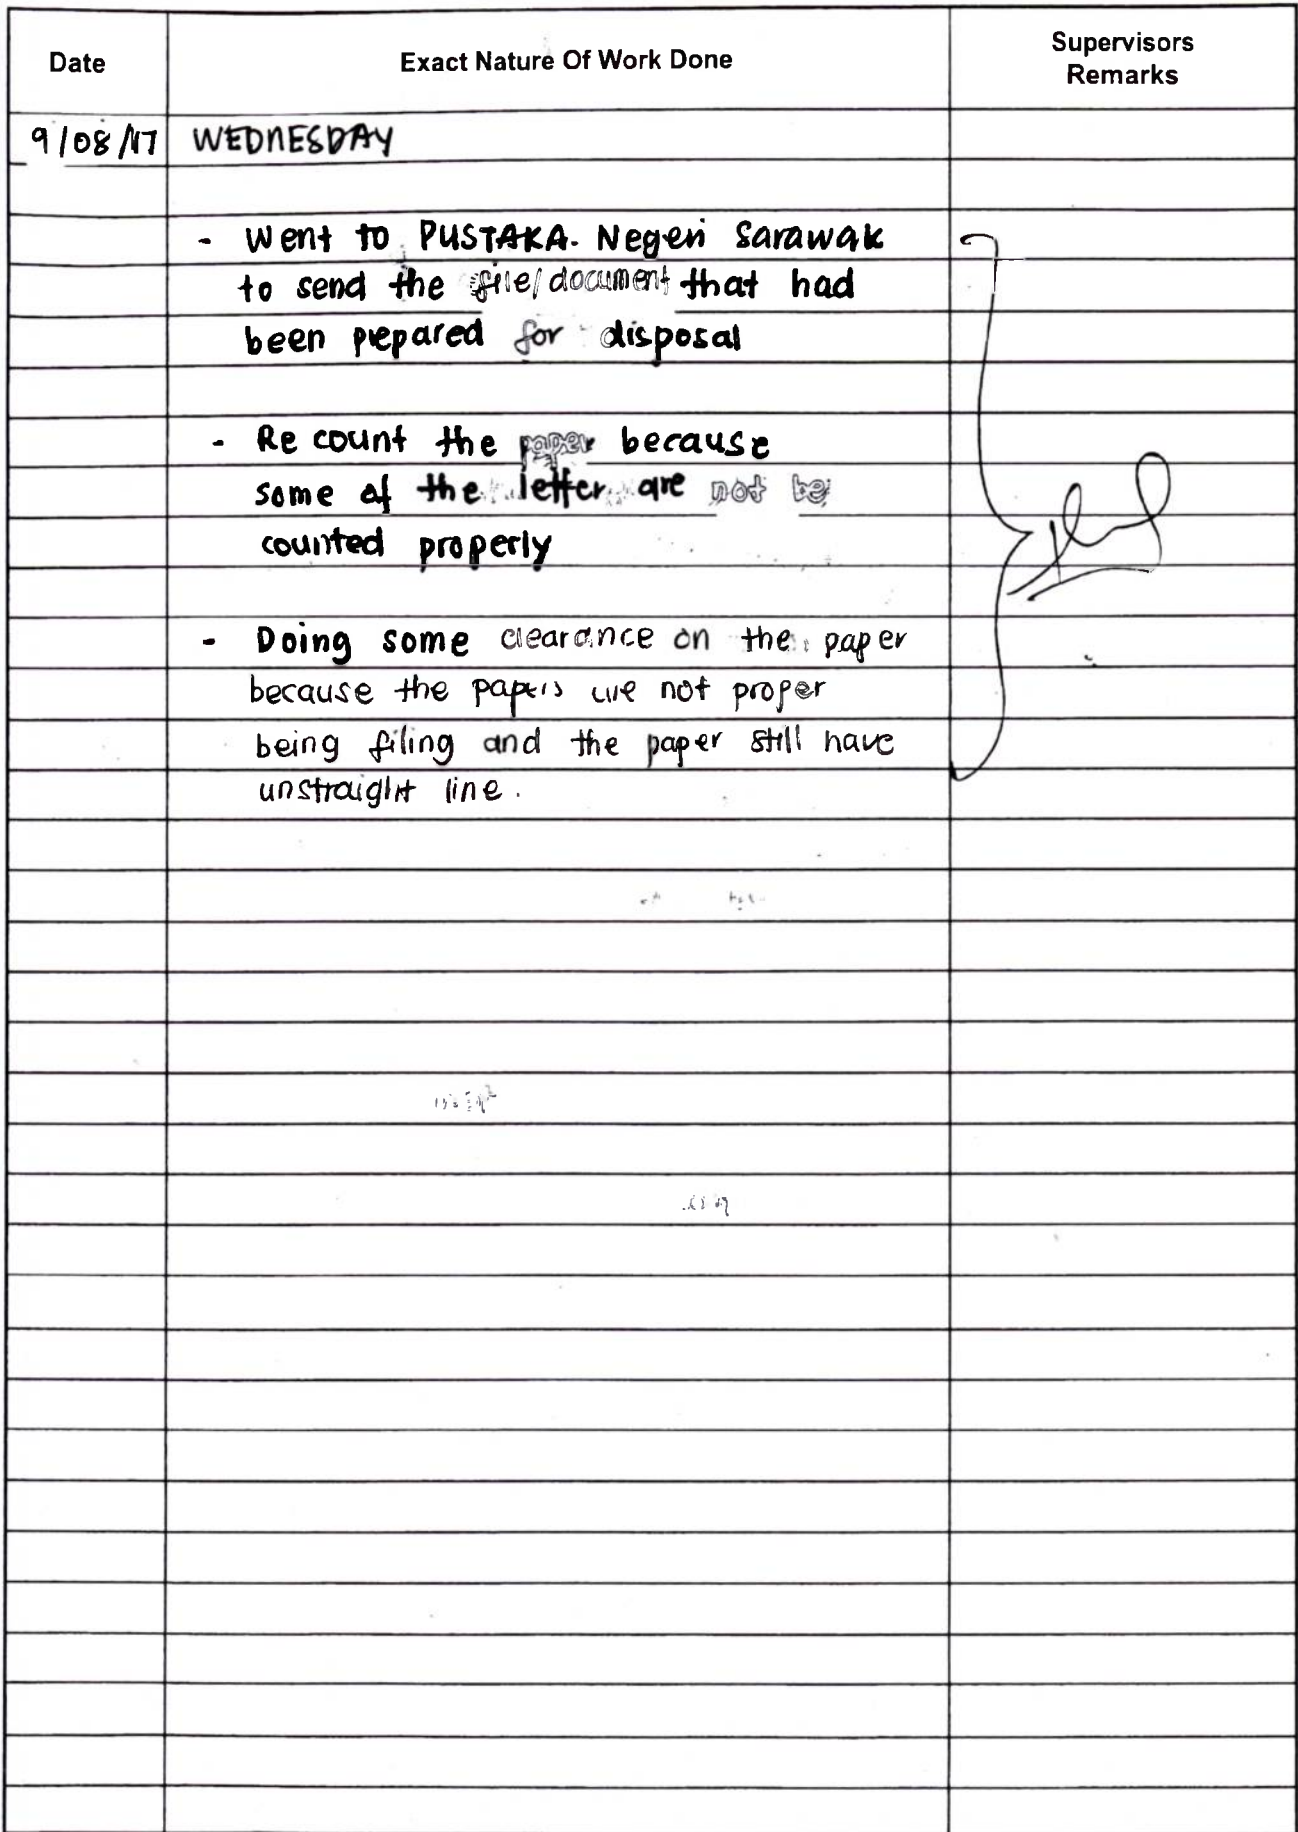 Date
Exact Nature Of Work Done
Supervisors
Remarks
9/08/17 WEDNESDAY
- Went to PUSTAKA. Negeri Sarawak
to send the file/document that had
been prepared for disposal
- Re count the paper because
some of the letter are not be
counted properly
- Doing some clearance on the paper
because the papers are not proper
being filing and the paper still have
unstraight line.